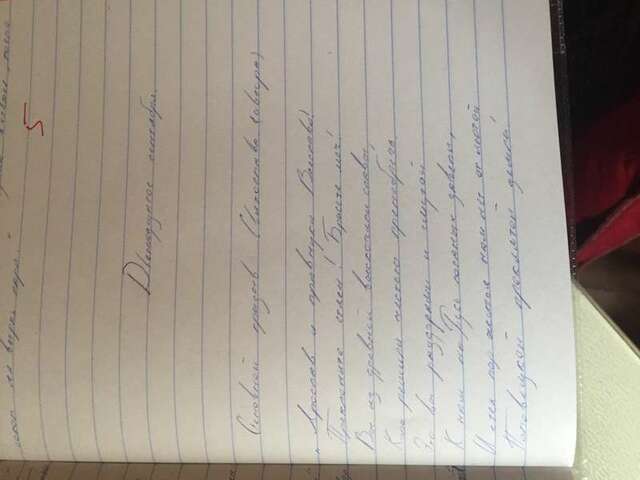 5
Двенадцатое сентября.
Основной призыв (автора)
„Ярослав и правнуки Всеслава!
Преклоните стяги! Бросьте меч!
Вы из древней выскочили славы,
Коль решили честью пренебречь
Это вы раздорами и смутой
К нам на Русь поганых завели,
И с тех пор житья нам нет от лютой
Половецкой проклятой земли!